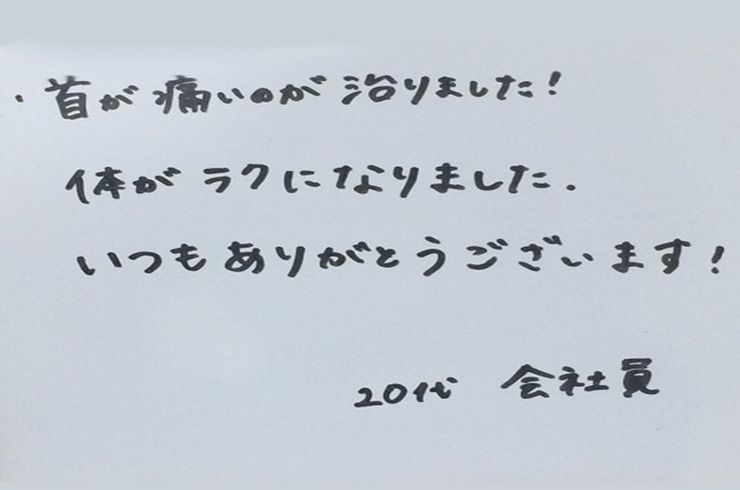 ・首が痛いのが治りました!
体がラクになりました.
いつもありがとうございます!
20代 会社員